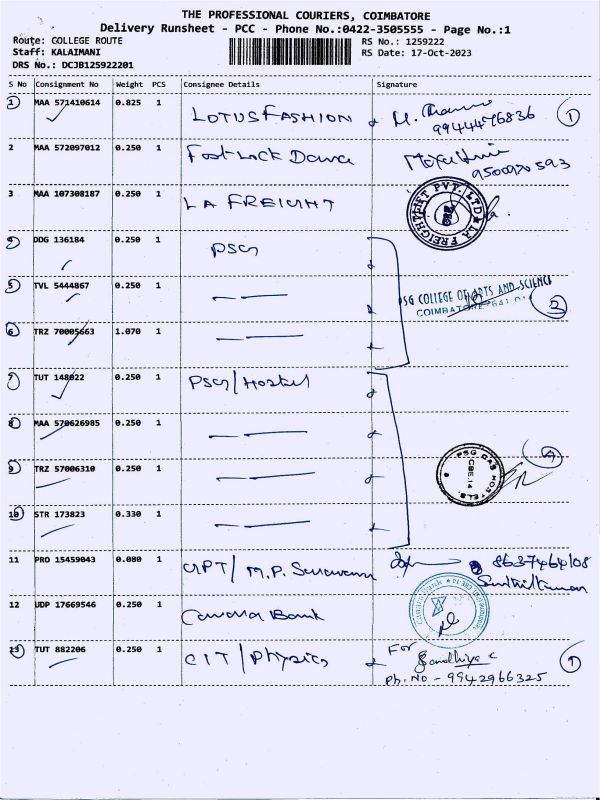 THE PROFESSIONAL COURIERS, COIMBATORE
Delivery Runsheet - PCC - Phone No.:0422-3505555 - Page No.:1
Route: COLLEGE ROUTE
RS No.: 1259222
Staff: KALAIMANI
RS Date: 17-Oct-2023
DRS No.: DCJB125922201
S No Consignment No Weight PCS Consignee Details Signature
1 MAA 571410614 0.825 1 LOTUS FASHION 1
9944476836
2 MAA 572097012 0.250 1 Foot Lock
3 MAA 107308187 0.250 1 LA FREIGHT
LA FREIGHTLIFT PVT. LTD
4 DDG 136184 0.250 1 PSG
5 TVL 5444867 0.250 1 PSG COLLEGE OF ARTS AND SCIENCE 2
COIMBATORE 641 01
6 TRZ 70005663 1.070 1
7 TUT 148022 0.250 1 PSG/Hostel
8 MAA 570626985 0.250 1
9 TRZ 57006310 0.250 1 PSG CAS HOSTELS CBE.14
10 STR 173823 0.330 1
11 PRO 15459043 0.080 1 M.P. 8637464108
Senthilkumar
12 UDP 17669546 0.250 1 Canara Bank
Canara Bank
13 TUT 882206 0.250 1 CIT/Physics For
Sandhiya
Ph.No - 9942966325